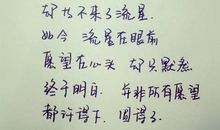 却等不来了流星.
如今 流星在眼前
愿望在心头 却只默念
终于明白. 并非所有愿望
都许得下. 圆得了.